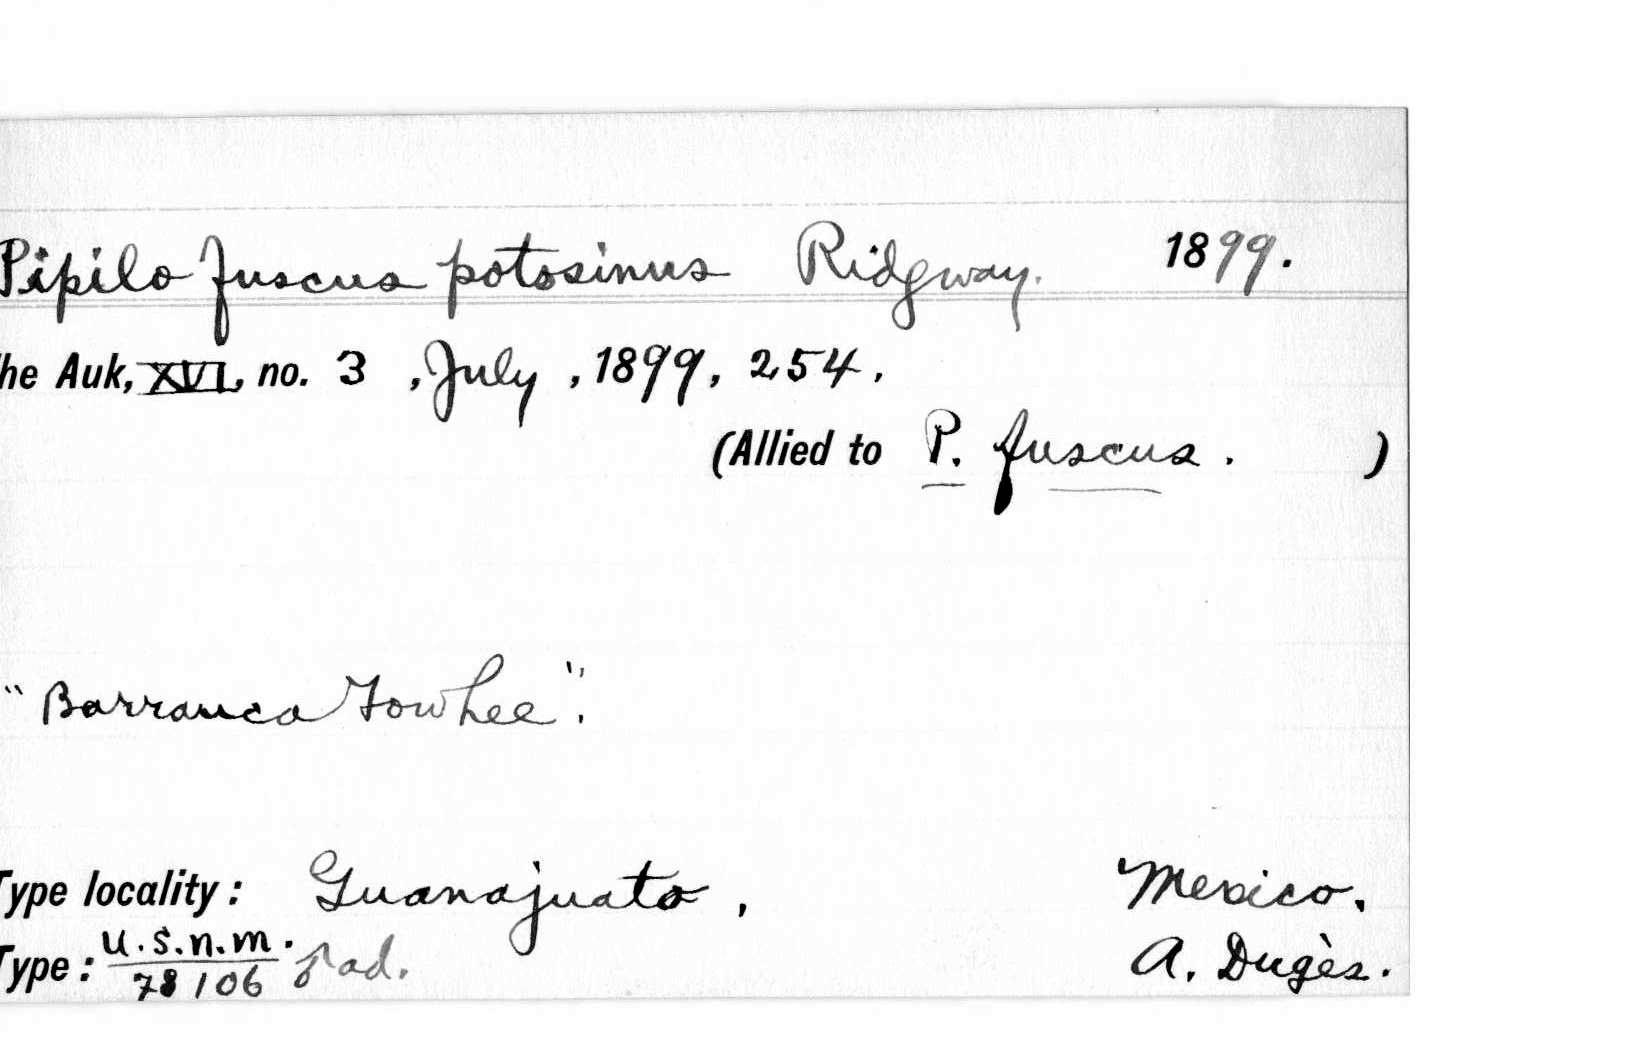 Pipilo fuscus potosinus Ridgway. 1899.
he Auk, XVI, no. 3 , July , 1899, 254.
(Allied to P. fuscus. )
"Barranca Towhee".
Type locality: Guanajuato, Mexico.
Type: U.S.N.M. 78106 ad. A. Dugès.